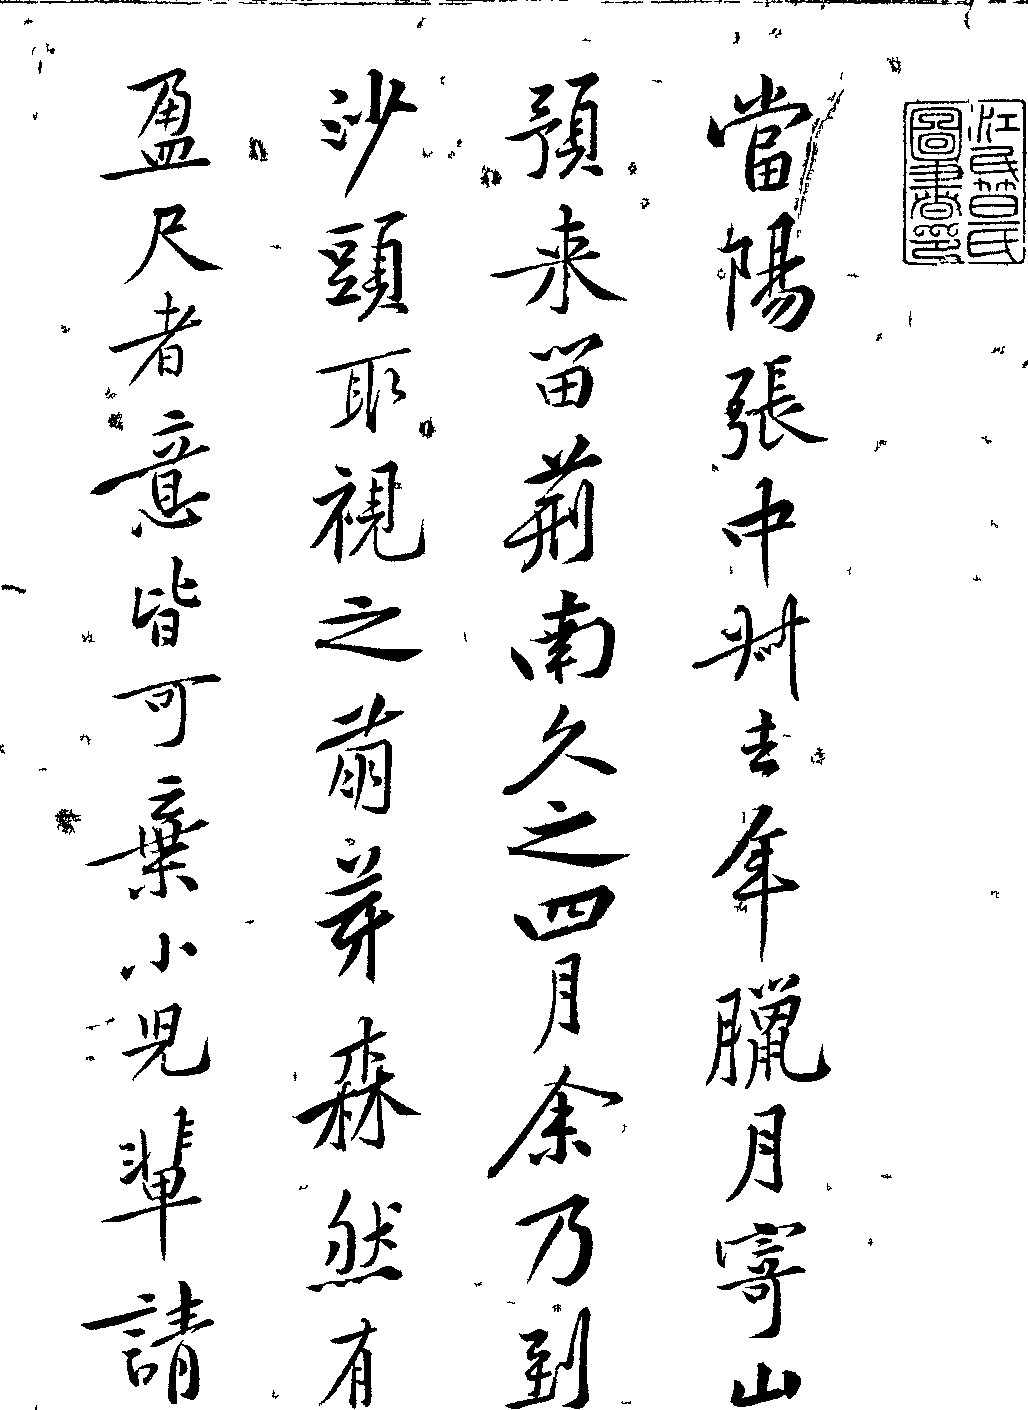 當陽張中叔去年臘月寄山
預来留荊南久之四月余乃到
沙頭取視之萌芽森然有
盈尺者意皆可棄小兒輩請